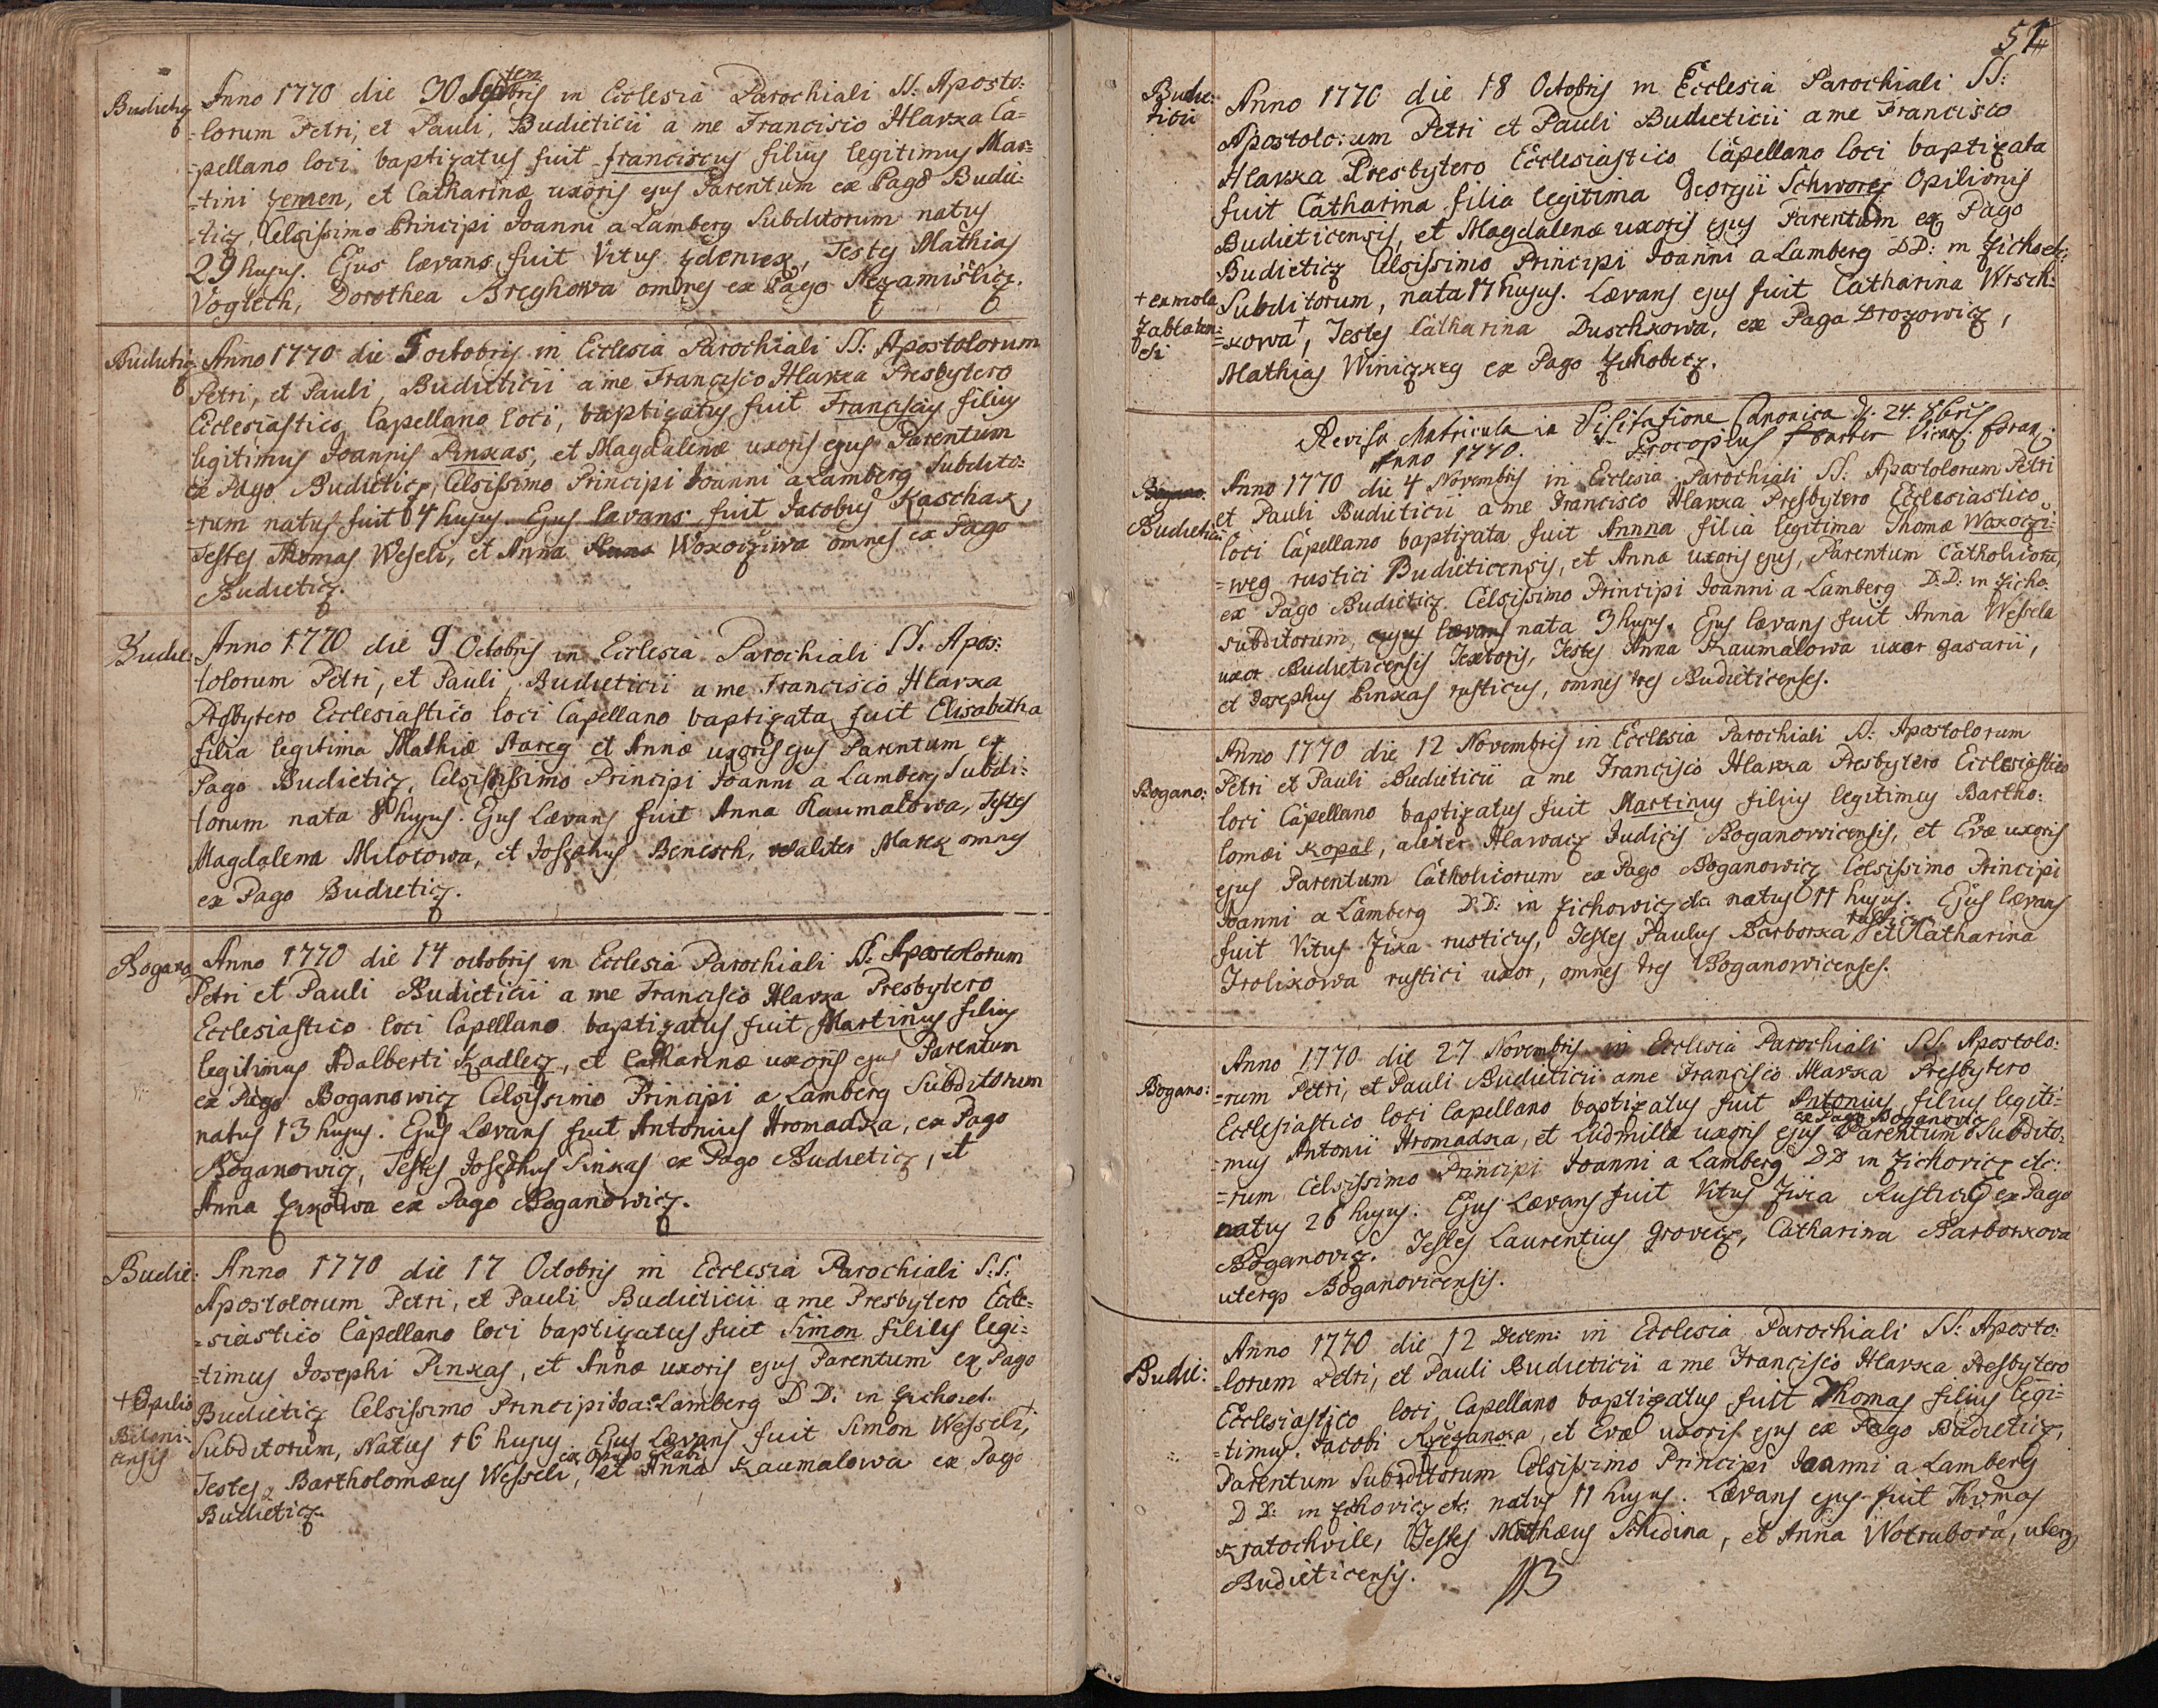 Budieticz
Anno 1770 die 30 Septembris in Ecclesia Parochiali SS. Aposto:
=lorum Petri, et Pauli, Budieticii a me Francisco Hlavka Ca=
=pellano loci baptizatus fuit Franciscus filius legitimus Mar=
=tini Zemen, et Catharinæ uxoris ejus Parentum ex Pago Budie:
=ticz, Celsissimo Principi Joanni a Lamberg Subditorum natus
29 hujus. Ejus lævans fuit Vitus Zdenvek, Testes Mathias
Vogtech, Dorothea Breghowa omnes ex Pago Nezamislicz.
Budieticz
Anno 1770 die 5 octobris in Ecclesia Parochiali SS: Apostolorum
Petri, et Pauli, Budieticii a me Francisco Hlavka Presbytero
Ecclesiastico, Capellano loci, baptizatus fuit Franciscus filius
legitimus Joannis Pinkas, et Magdalenæ uxoris ejus Parentum
ex Pago Budieticz, Celsissimo Principi Joanni a Lamberg Subdito:
=rum natus fuit 4 hujus. Ejus lævans fuit Jacobus Kaschak,
Testes Thomas Weseli, et Anna Woxocziwa omnes ex Pago
Budieticz.
Budie:
Anno 1770 die 9 Octobris in Ecclesia Parochiali SS. Apos:
tolorum Petri, et Pauli, Budieticii a me Francisco Hlavka
Presbytero Ecclesiastico loci Capellano baptizata fuit Elisabetha
filia legitima Mathiæ Stareg et Annæ uxoris ejus Parentum ex
Pago Budieticz, Celsissimo Principi Joanni a Lamberg Subdi:
torum nata 8 hujus. Ejus Lævans fuit Anna Kaumalowa, Testes
Magdalena Milotowa, et Josephus Benesch, aliter Marek omnes
ex Pago Budieticz.
Bogano
Anno 1770 die 14 octobris in Ecclesia Parochiali SS: Apostolorum
Petri et Pauli Budieticii a me Francisco Hlavka Presbytero
Ecclesiastico loci Capellano baptizatus fuit Martinus filius
legitimus Adalberti Kadlecz, et Catharinæ uxoris ejus Parentum
ex Pago Boganowicz Celsissimo Principi a Lamberg Subditorum
natus 13 hujus. Ejus Lævans fuit Antonius Hromadka, ex Pago
Boganowicz, Testes Josephus Pinkas ex Pago Budieticz, et
Anna Zikowa ex Pago Boganowicz.
Budie:
Anno 1770 die 17 Octobris in Ecclesia Parochiali S:S:
Apostolorum Petri, et Pauli Budieticii a me Presbytero Eccle=
=siastico Capellano loci baptizatus fuit Simon filius legi=
=timus Josephi Pinkas, et Annæ uxoris ejus Parentum ex Pago
Budieticz Celsissimo Principi Joa: a Lamberg DD: in Zicho et.
Subditorum, Natus 16 hujus Ejus Lævans fuit Simon Wesseli,+
+ Opilio
Bileni-
censis
ex Oppido Rabi
Testes Bartholomæus Wesseli, et Anna Kaumalowa ex Pago
Budieticz.
51
Budie:
ticii
Anno 1770 die 18 Octobris in Ecclesia Parochiali SS:
Apostolo:um Petri et Pauli Budieticii a me Francisco
Hlavka Presbytero Ecclesiastico Capellano loci baptizata
fuit Catharina filia legitima Georgii Schworez Opilionis
Budieticensis, et Magdalenæ uxoris ejus Parentum ex Pago
Budieticz Celsissimo Principi Joanni a Lamberg DD: in Zicho et:
Subditorum, nata 17 hujus. Lævans ejus fuit Catharina Wrsch=
=kowa+, Testes Catharina Duschkowa, ex Pago Drozowicz,
Mathias Winiczkeg ex Pago Zichobecz.
+ ex mola
Zablaten=
si
Revisa Matricula in Visitatione Canonica d. 24. 8bris
Anno 1770. Procopius Vicar. foran.
Budieticii
Anno 1770 die 4 Novembris in Ecclesia Parochiali SS. Apostolorum Petri
et Pauli Budieticii a me Francisco Hlavka Presbytero Ecclesiastico
loci Capellano baptizata fuit Annna filia legitima Thomæ Woxoczi:
=weg rustici Budieticensis, et Annæ uxoris ejus, Parentum Catholicorum,
ex Pago Budieticz Celsissimo Principi Joanni a Lamberg D:D: in Zicho:
subditorum, nata 3 hujus. Ejus lævans fuit Anna Wessela
uxor Budieticensis Textoris, Testes Anna Kaumalowa uxor gasarii,
et Josephus Pinkas rusticus, omnes tres Budieticenses.
Bogano:
Anno 1770 die 12 Novembris in Ecclesia Parochiali SS: Apostolorum
Petri et Pauli Budieticii a me Francisco Hlavka Presbytero Ecclesiastico
loci Capellano baptizatus fuit Martinus filius legitimus Bartho:
lomæi Kopal, aliter Hlawacz Judicis Boganowicensis, et Evæ uxoris
ejus Parentum Catholicorum ex Pago Boganowicz Celsissimo Principi
Joanni a Lamberg D:D: in Zichowicz etc natus 11 hujus. Ejus lævans
fuit Vitus Zika rusticus, Testes Paulus Barborka rusticus et Katharina
Trolikowa rustici uxor, omnes tres Boganowicenses.
Bogano:
Anno 1770 die 27 Novembris in Ecclesia Parochiali SS Apostolo:
=rum Petri, et Pauli Budieticii a me Francisco Hlavka Presbytero
Ecclesiastico loci Capellano baptizatus fuit Antonius filius legiti=
ex Pago Boganovicz
=mus Antonii Hromadka, et Ludmillæ uxoris ejus Parentum Subdito:
=rum Celsissimo Principi Joanni a Lamberg DD in Zichovicz etc:
natus 26 hujus. Ejus Lævans fuit Vitus Zika Rusticus ex Pago
Boganovicz. Testes Laurentius Grovecz, Catharina Barborkova
uterq Boganovicensis.
Budie:
Anno 1770 die 12 Decem: in Ecclesia Parochiali SS: Aposto:
=lorum Petri, et Pauli Budieticii a me Francisco Hlavka Presbytero
Ecclesiastico loci Capellano baptizatus fuit Thomas filius legi=
=timus Jacobi Krzezanka, et Evæ uxoris ejus ex Pago Budieticz,
Parentum Subditorum Celsissimo Principi Joanni a Lamberg
D D: in Zichovicz etc: natus 11 hujus. Lævans ejus fuit Thomas
Kratochvile, Testes Mathæus Schidina, et Anna Wotrubova, uterq
Budieticensis.